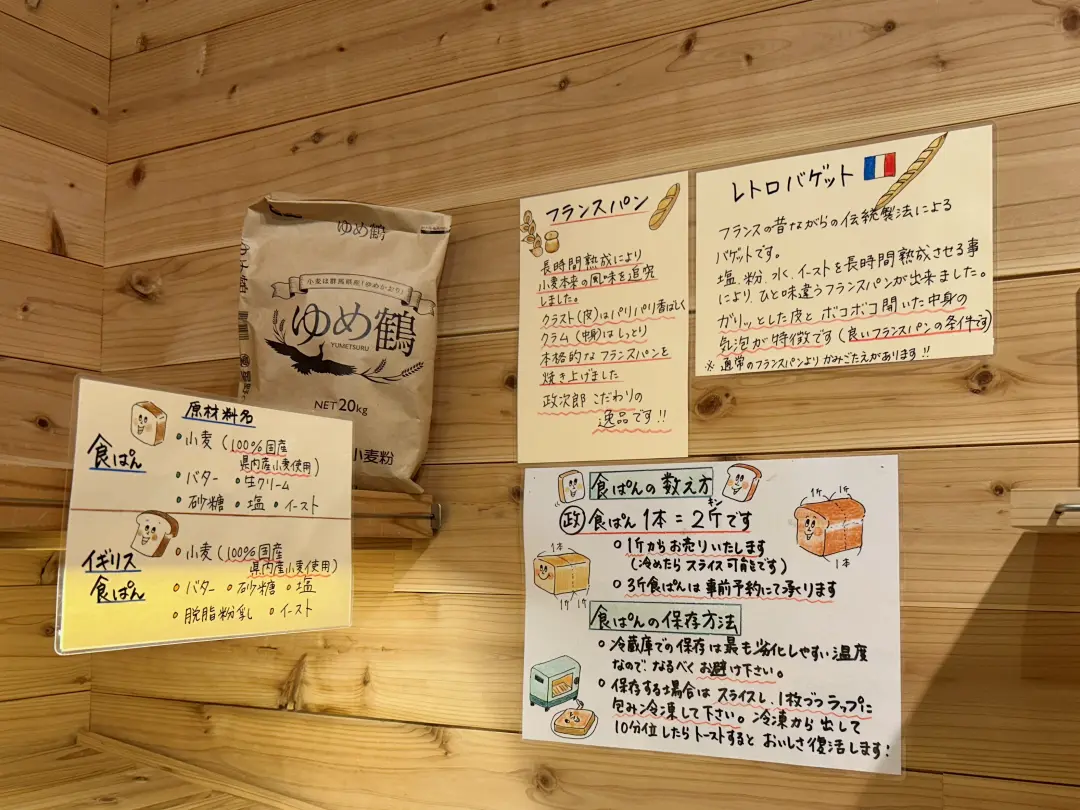 ゆめ鶴
小麦は群馬県産「ゆめかおり」
ゆめ鶴
YUMETSURU
NET 20kg
小麦粉
原材料名
食ぱん
•小麦(100%国産
県内産小麦使用)
•バター •生クリーム
砂糖 •塩 •イースト
イギリス
食ぱん
○小麦(100%国産
県内産小麦使用)
○バター ○砂糖 ○塩
○脱脂粉乳 ○イースト
フランスパン
長時間熟成により
小麦本来の風味を追究
しました。
クラスト(皮)はパリパリ香ばしく
クラム(中身)はしっとり
本格的なフランスパンを
焼き上げました
政次郎こだわりの
逸品です!!
レトロバゲット
フランスの昔ながらの伝統製法による
バゲットです。
塩、粉、水、イーストを長時間熟成させる事
により、ひと味違うフランスパンが出来ました。
ガリッとした皮とボコボコ開いた中身の
気泡が特徴です(良いフランスパンの条件です)
※通常のフランスパンよりがみごたえがあります!!
食ぱんの数え方
政 食ぱん1本=2斤です
キン
○1斤からお売りいたします
(冷めたらスライス可能です)
○3斤食ぱんは事前予約にて承ります
1本
1斤 1斤
1斤 1斤
1本
食ぱんの保存方法
○冷蔵庫での保存は最も劣化しやすい温度
なので、なるべくお避け下さい。
○保存する場合はスライスし、1枚づつラップに
包み冷凍して下さい。冷凍から出して
10分位したらトーストするとおいしさ復活します!